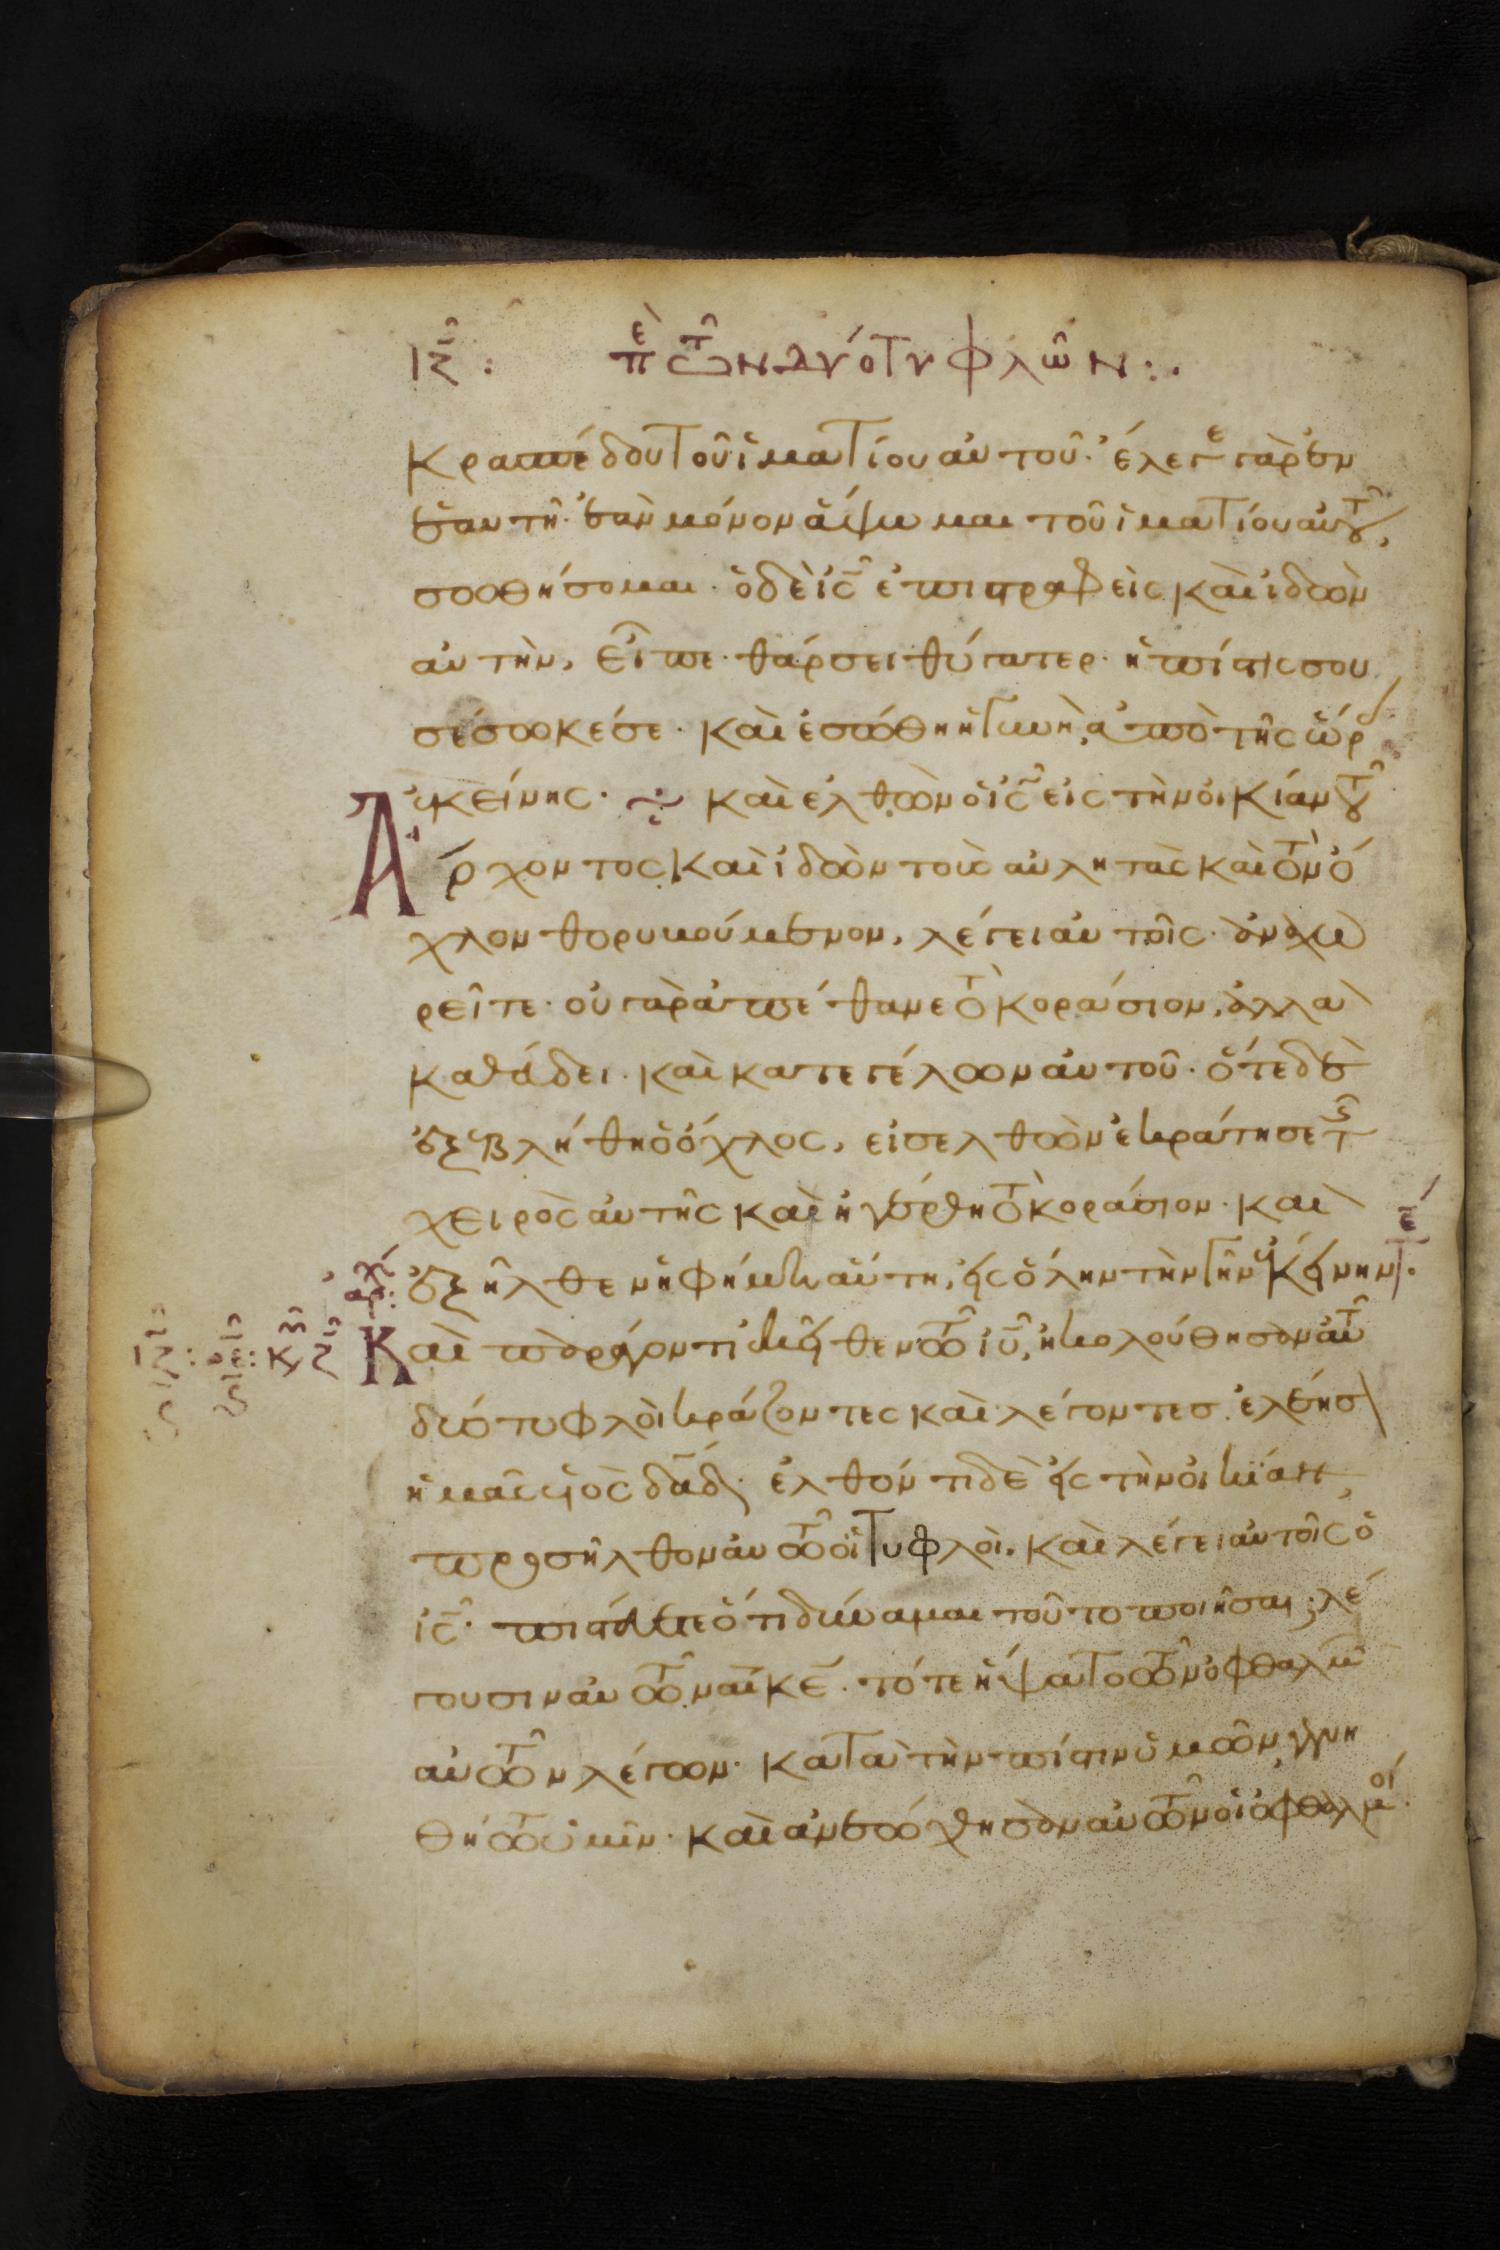 ιζ : πε των δύο τυφλῶν :.
κρασπέδου τοῦ ἱματίου αυτοῦ· ἔλεγε γὰρ ἐν
ἑαυτῆ· ἐὰν μόνον ἅψωμαι τοῦ ἱματίου αυτοῦ,
σωθήσομαι· ὁ δὲ ις ἐπιστραφεὶς καὶ ἰδὼν
αυτὴν, εἶπε· θάρσει θύγατερ· ἡ πίστις σου
σέσωκέ σε· καὶ ἐσώθη ἡ γυνὴ ἀπὸ τῆς ὥρ
ἐκείνης· καὶ ελθὼν ὁ ις εἰς τὴν οἰκίαν τοῦ
ἄρχοντος, καὶ ἰδὼν τοὺς αυλητὰς καὶ τὸν ὄ
χλον θορυβούμενον, λέγει αυτοῖς· ἀναχω
ρεῖτε· οὐ γὰρ ἀπέθανε τὸ κοράσιον, ἀλλὰ
καθεύδει· καὶ κατεγέλων αυτοῦ· ὅτε δὲ
ἐξεβλήθη ὁ ὄχλος, εἰσελθὼν ἐκράτησε τῆς
χειρὸς αυτῆς καὶ ἠγέρθη τὸ κοράσιον· καὶ
ἐξῆλθεν ἡ φήμη αὕτη, εἰς ὅλην τὴν γῆν ἐκείνην·
Καὶ παράγοντι ἐκεῖθεν τῶ ιυ, ἠκολούθησαν αυτῶ
δύο τυφλοὶ κράζοντες καὶ λέγοντες· ἐλέησ
ἡμᾶς υἱὸς δαδ· ἐλθόντι δὲ εἰς τὴν οἰκίαν,
προσῆλθον αυτῶ οἱ τυφλοὶ. καὶ λέγει αυτοῖς ὁ
ις· πιστεύετε ὅτι δύναμαι τοῦτο ποιῆσαι; λέ
γουσιν αυτῶ, ναὶ κε· τότε ἥψατο τῶν ὀφθαλμῶ
αυτῶν λέγων· κατὰ τὴν πίστιν ὑμῶν, γενη
θήτω ὑμῖν· καὶ ἀνεώχθησαν αυτῶν οἱ ὀφθαλμοί·